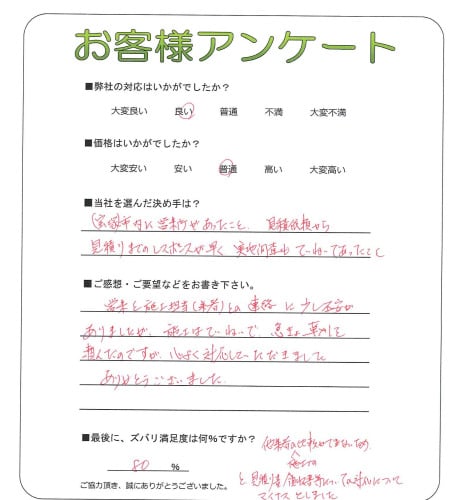 お客様アンケート
■弊社の対応はいかがでしたか？
大変良い 良い 普通 不満 大変不満
■価格はいかがでしたか？
大変安い 安い 普通 高い 大変高い
■当社を選んだ決め手は？
市内に営業所があったこと、見積依頼から
見積りまでのレスポンスが早く 実地調査も ていねいであったこと
■ご感想・ご要望などをお書き下さい。
営業と施工担当(業者)との連絡に少し不安が
ありましたが、施工はていねいで、急きょ 草刈を
頼んだのですが、心よく対応していただきました
ありがとうございました。
■最後に、ズバリ満足度は何%ですか？
80 %
他業者の比較ができないため
と、見積り書 について
マイナス としました
ご協力頂き、誠にありがとうございました。